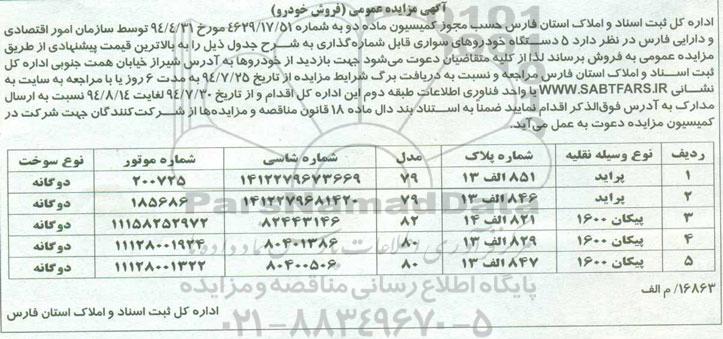 آگهی مزایده عمومی (فروش خودرو)
اداره کل ثبت اسناد و املاک استان فارس حسب مجوز کمیسیون ماده دو به شماره ۴۶۲۹/۱۷/۵۱ مورخ ۹۴/۴/۳۱ توسط سازمان امور اقتصادی
و دارایی فارس در نظر دارد ۵ دستگاه خودروهای سواری قابل شماره‌گذاری به شرح جدول ذیل را به بالاترین قیمت پیشنهادی از طریق
مزایده عمومی به فروش برساند لذا از کلیه متقاضیان دعوت می‌شود جهت بازدید از خودروها به آدرس شیراز خیابان همت جنوبی اداره کل
ثبت اسناد و املاک استان فارس مراجعه و نسبت به دریافت برگ شرایط مزایده از تاریخ ۹۴/۷/۲۵ به مدت ۶ روز یا با مراجعه به سایت به
نشانی WWW.SABTFARS.IR یا واحد فناوری اطلاعات طبقه دوم این اداره کل اقدام و از تاریخ ۹۴/۷/۳۰ لغایت ۹۴/۸/۱۴ نسبت به ارسال
مدارک به آدرس فوق‌الذکر اقدام نمایید ضمناً به استناد بند دال ماده ۱۸ قانون مناقصه و مزایده‌ها از شرکت‌کنندگان جهت شرکت در
کمیسیون مزایده دعوت به عمل می‌آید.
ردیف نوع وسیله نقلیه شماره پلاک مدل شماره شاسی شماره موتور نوع سوخت
۱ پراید ۸۵۱ الف ۱۳ ۷۹ ۱۴۱۲۲۷۹۶۷۳۶۶۹ ۲۰۰۷۲۵ دوگانه
۲ پراید ۸۴۶ الف ۱۳ ۷۹ ۱۴۱۲۲۷۹۶۸۱۴۲۰ ۱۸۵۶۸۶ دوگانه
۳ پیکان ۱۶۰۰ ۸۲۱ الف ۱۴ ۸۲ ۸۲۴۴۳۱۴۶ ۱۱۱۵۸۲۵۲۹۷۲ دوگانه
۴ پیکان ۱۶۰۰ ۸۲۹ الف ۱۳ ۸۰ ۸۰۴۰۱۳۸۶ ۱۱۱۲۸۰۰۱۹۲۴ دوگانه
۵ پیکان ۱۶۰۰ ۸۴۷ الف ۱۳ ۸۰ ۸۰۴۰۰۵۰۶ ۱۱۱۲۸۰۰۱۳۲۲ دوگانه
پایگاه اطلاع رسانی مناقصه و مزایده
۱۶۸۶۳/ م الف
اداره کل ثبت اسناد و املاک استان فارس
۰۲۱-۸۸۳۴۹۶۷۰-۵